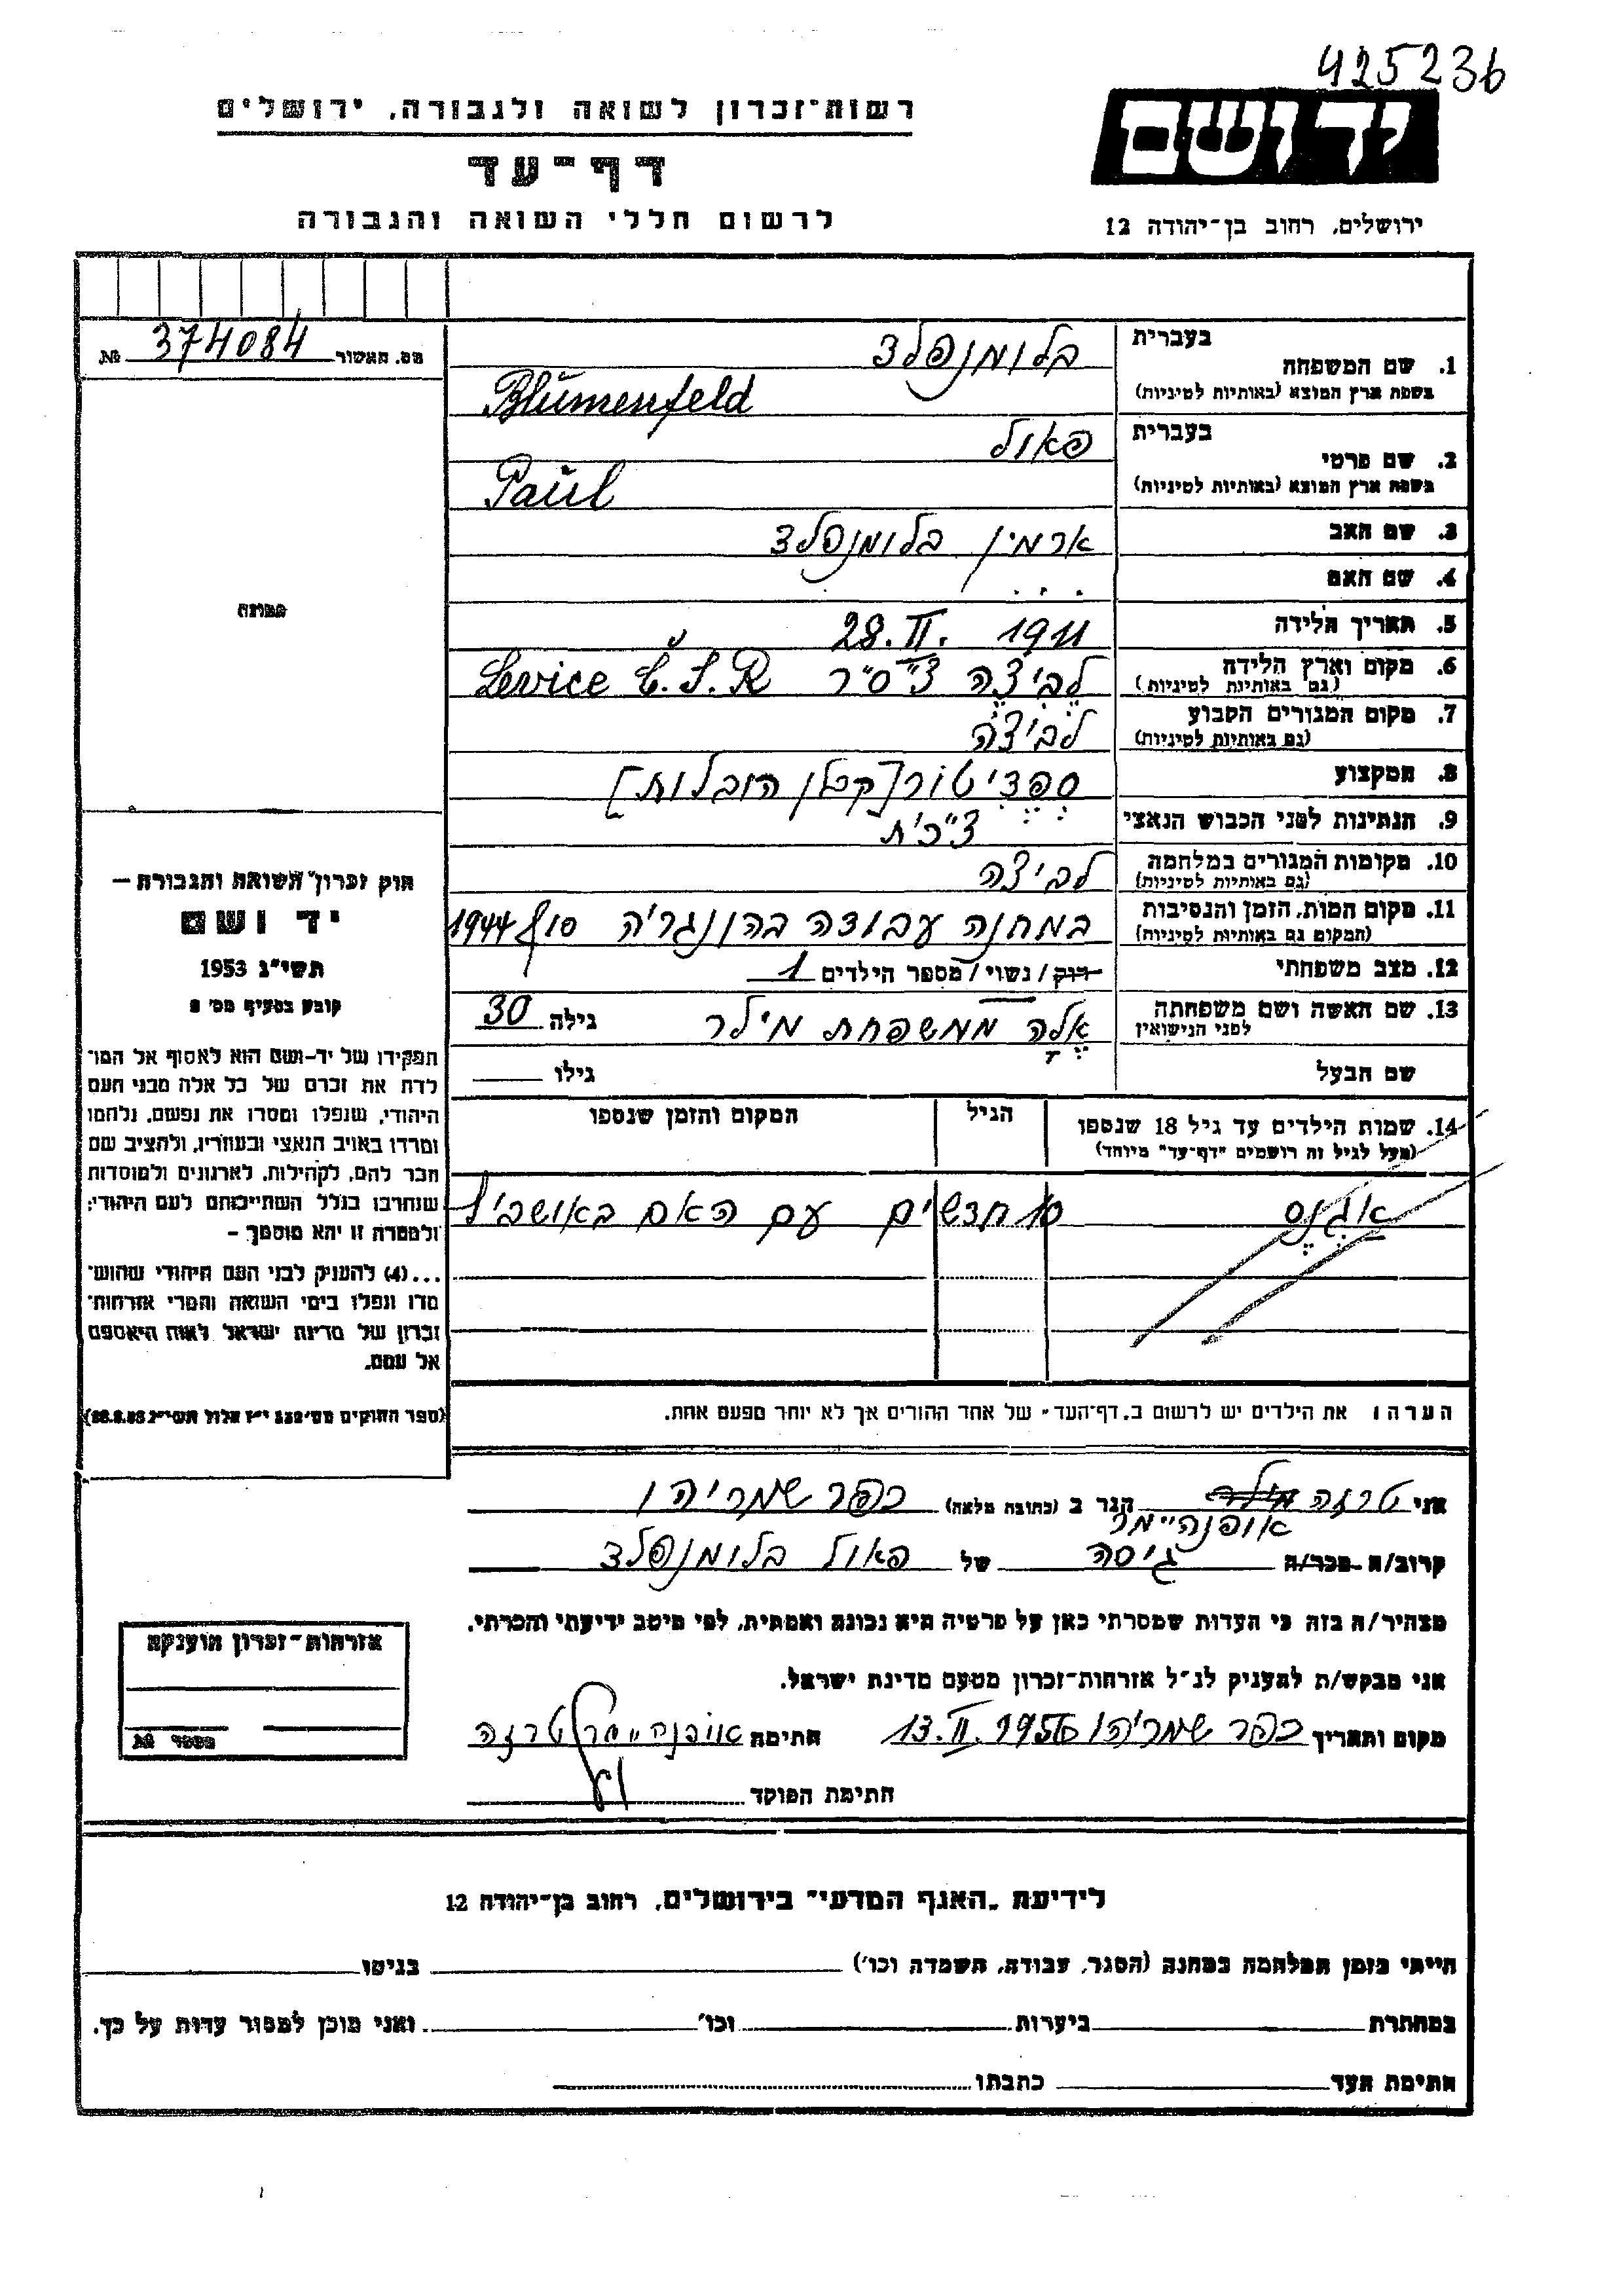 425236
רשות־זכרון לשואה ולגבורה, ירושלים
יד ושם
דף־עד
לרשום חללי השואה והגבורה
ירושלים, רחוב בן־יהודה 12
מס. האשור 374084 №
בעברית
1. שם המשפחה בלומנפלד
בשפת ארץ המוצא (באותיות לטיניות) Blŭmenfeld
בעברית
2. שם פרטי פאול
בשפת ארץ המוצא (באותיות לטיניות) Paŭl
3. שם האב ארמין בלומנפלד
4. שם האם . . .
5. תאריך הלידה 28. II. 1911
6. מקום וארץ הלידה לביצה צ"ס"ר Levice Č.S.R
(גם באותיות לטיניות)
7. מקום המגורים הקבוע לביצה
(גם באותיות לטיניות)
8. המקצוע ספציטור [קבלן הובלות]
9. הנתינות לפני הכבוש הנאצי צ"כ'ת
10. מקומות המגורים במלחמה לביצה
(גם באותיות לטיניות)
11. מקום המות, הזמן והנסיבות במחנה עבודה בהונגריה סוף 1944
(המקום גם באותיות לטיניות)
12. מצב משפחתי רוק / נשוי / מספר הילדים 1
13. שם האשה ושם משפחתה אלה ממשפחת מילר גילה 30
לפני הנישואין
שם הבעל גילו
14. שמות הילדים עד גיל 18 שנספו הגיל המקום והזמן שנספו
(מעל לגיל זה רושמים "דף־עד" מיוחד)
אגנס 10 חדשים עם האם באושביץ
הערה: את הילדים יש לרשום ב"דף־העד" של אחד ההורים אך לא יותר מפעם אחת.
תמונה
חוק זכרון השואה והגבורה –
יד ושם
תשי"ג 1953
קובע בסעיף מס' 2
תפקידו של יד-ושם הוא לאסוף אל המו־
לדת את זכרם של כל אלה מבני העם
היהודי, שנפלו ומסרו את נפשם, נלחמו
ומרדו באויב הנאצי ובעוזריו, ולהציב שם
וזכר להם, לקהילות, לארגונים ולמוסדות
שנחרבו בגלל השתייכותם לעם היהודי;
ולמטרה זו יהא מוסמך –
...(4) להעניק לבני העם היהודי שהוש־
מדו ונפלו בימי השואה והמרי אזרחות־
זכרון של מדינת ישראל לאות היאספם
אל עמם.
(ספר החוקים מס' 132 י"ז אלול תשי"ג 28.8.53)
אני טרזה הגר ב (כתובת מלאה) כפר שמריהו
אופנהיימר
קרוב/ה מכר/ה גיסה של פאול בלומנפלד
מצהיר/ה בזה כי העדות שמסרתי כאן על פרטיה היא נכונה ואמתית, לפי מיטב ידיעתי והכרתי.
אני מבקש/ת להעניק לנ"ל אזרחות־זכרון מטעם מדינת ישראל.
מקום ותאריך כפר שמריהו 13.II.1956 חתימה אופנהיימר טרזה
חתימת הפוקד
אזרחות־זכרון הוענקה
מספר №
לידיעת "האגף המדעי" בירושלים, רחוב בן־יהודה 12
הייתי בזמן המלחמה במחנה (הסגר, עבודה, השמדה וכו') בגיטו
במחתרת ביערות וכו' ואני מוכן למסור עדות על כך.
חתימת העד כתבתו